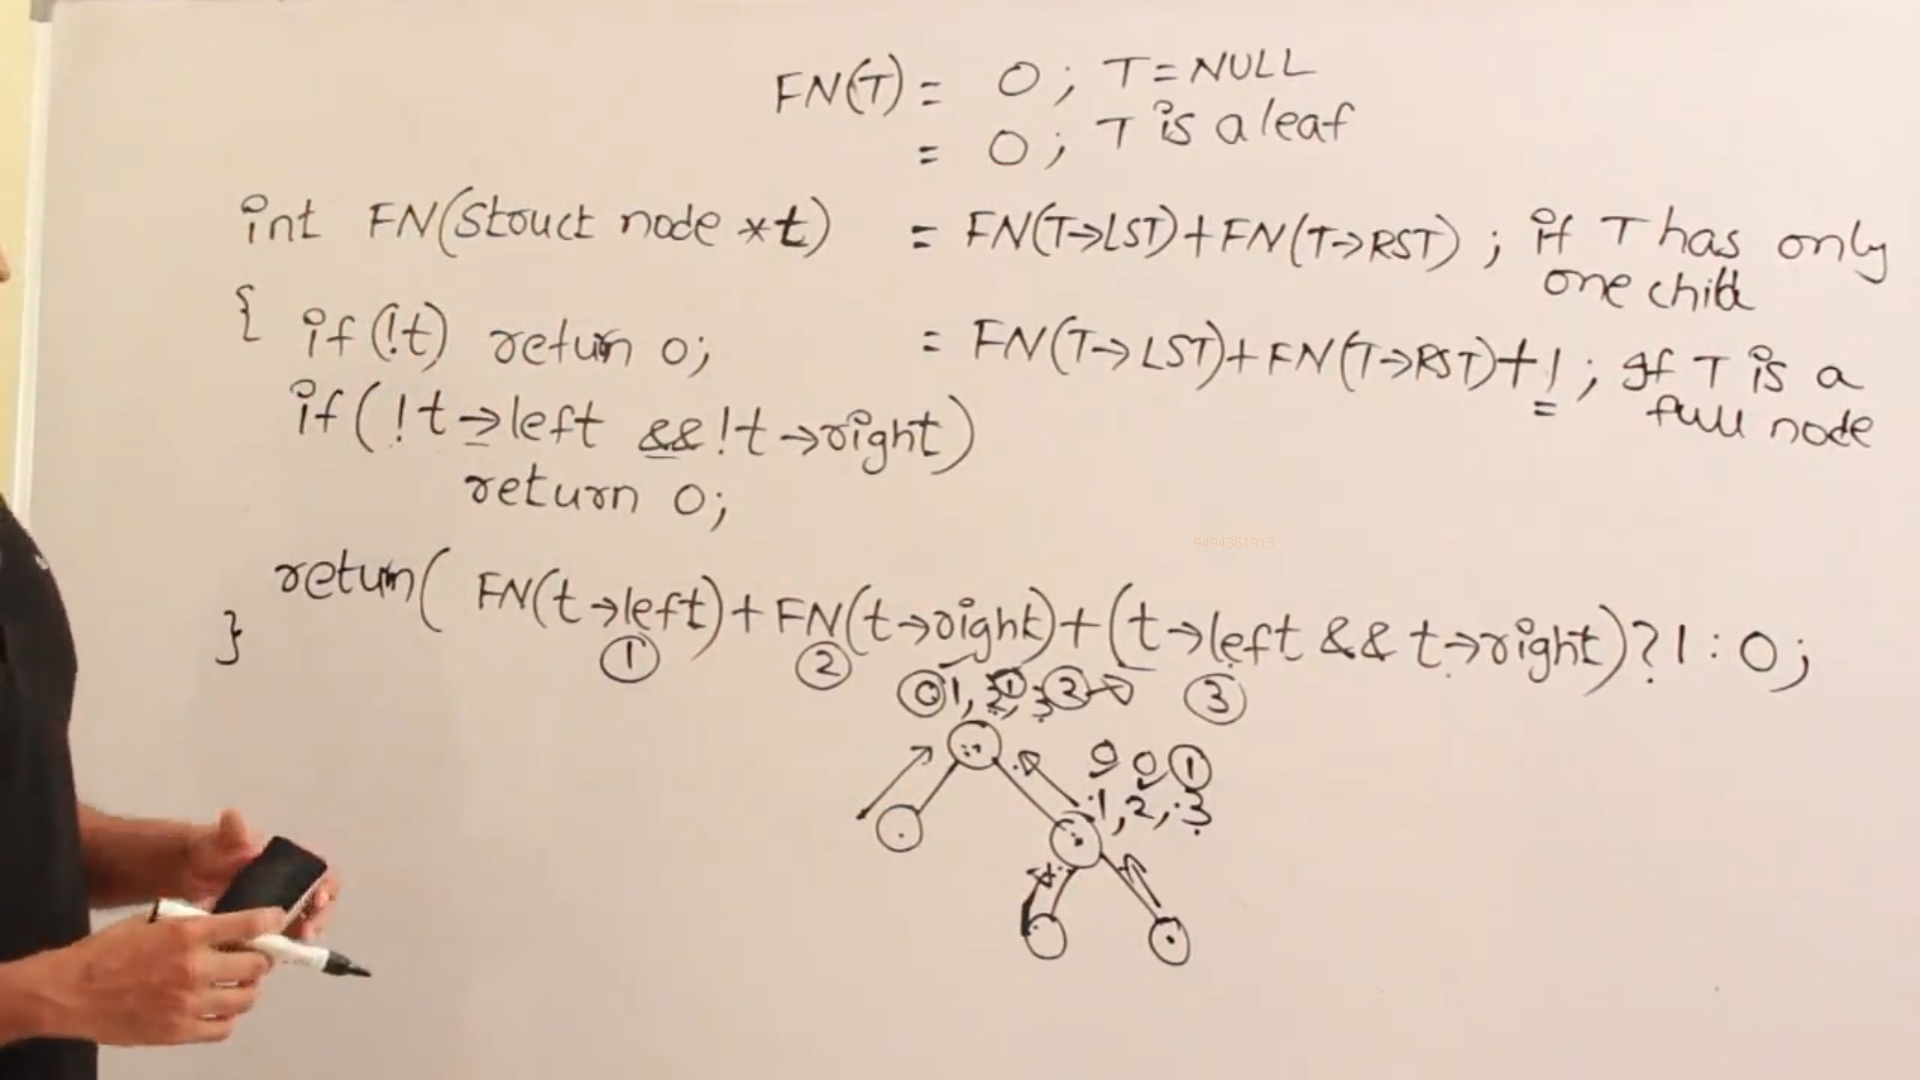 FN(T) = 0 ; T = NULL
= 0 ; T is a leaf
= FN(T→LST) + FN(T→RST) ; if T has only
one child
= FN(T→LST) + FN(T→RST) + 1 ; If T is a
full node
int FN(Struct node *t)
{ if(!t) return 0;
if( !t→left && !t→right)
return 0;
return( FN(t→left) + FN(t→right) + (t→left && t→right)? 1 : 0 ;
}
① ② ③
9494361913
0 0 ①
1, 2, 3